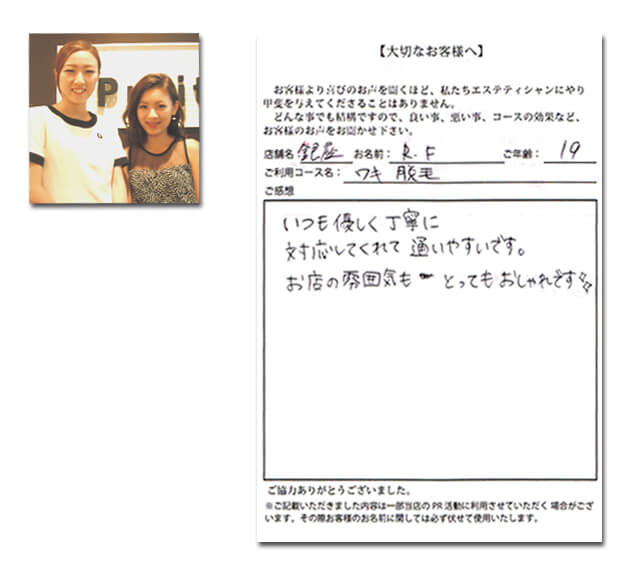 【大切なお客様へ】
お客様より喜びのお声を聞くほど、私たちエステティシャンにやり
甲斐を与えてくださることはありません。
どんな事でも結構ですので、良い事、悪い事、コースの効果など、
お客様のお声をお聞かせ下さい。
店舗名 銀座 お名前： R.F ご年齢： 19
ご利用コース名： ワキ 脱毛
ご感想
いつも優しく丁寧に
対応してくれて 通いやすいです。
お店の雰囲気も とってもおしゃれです
ご協力ありがとうございました。
※ご記載いただきました内容は一部当店のPR活動に利用させていただく場合がござ
います。その際お客様のお名前に関しては必ず伏せて使用いたします。